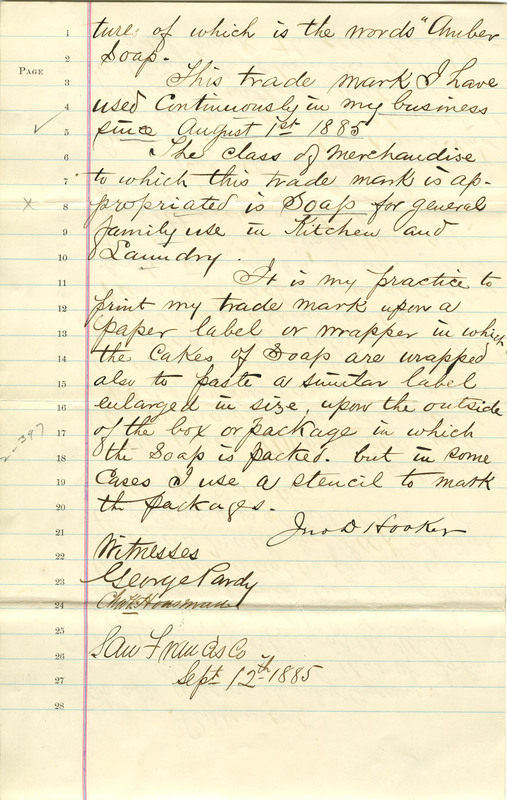 PAGE
1 ture, of which is the words "Amber
2 Soap.
3 This trade mark I have
4 used Continuously in my business
5 since August 1st 1885
6 The class of Merchandise
7 to which this trade mark is ap-
8 propriated is Soap for general
9 family use in Kitchen and
10 Laundry.
11 It is my practice to
12 print my trade mark upon a
13 paper label or wrapper in which
14 the Cakes of Soap are wrapped
15 also to paste a similar label
16 enlarged in size, upon the outside
17 of the box or package in which
18 the Soap is packed. but in some
19 Cases I use a stencil to mark
20 the packages.
21 Jno D Hooker
22 Witnesses
23 George Pardy
24 Housman
25
26 San Francisco
27 Sept 12th 1885
28
2-397